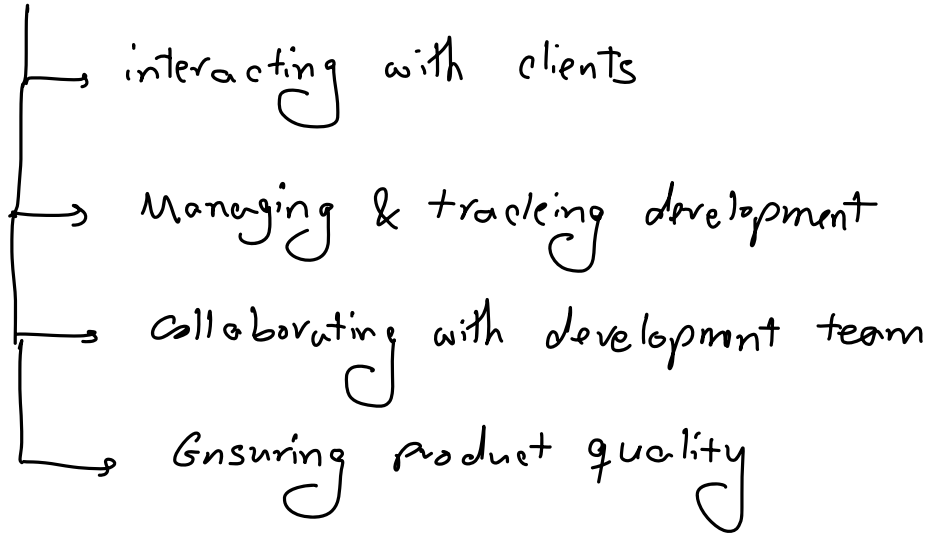 interacting with clients
Managing & tracking development
Collaborating with development team
Ensuring product quality